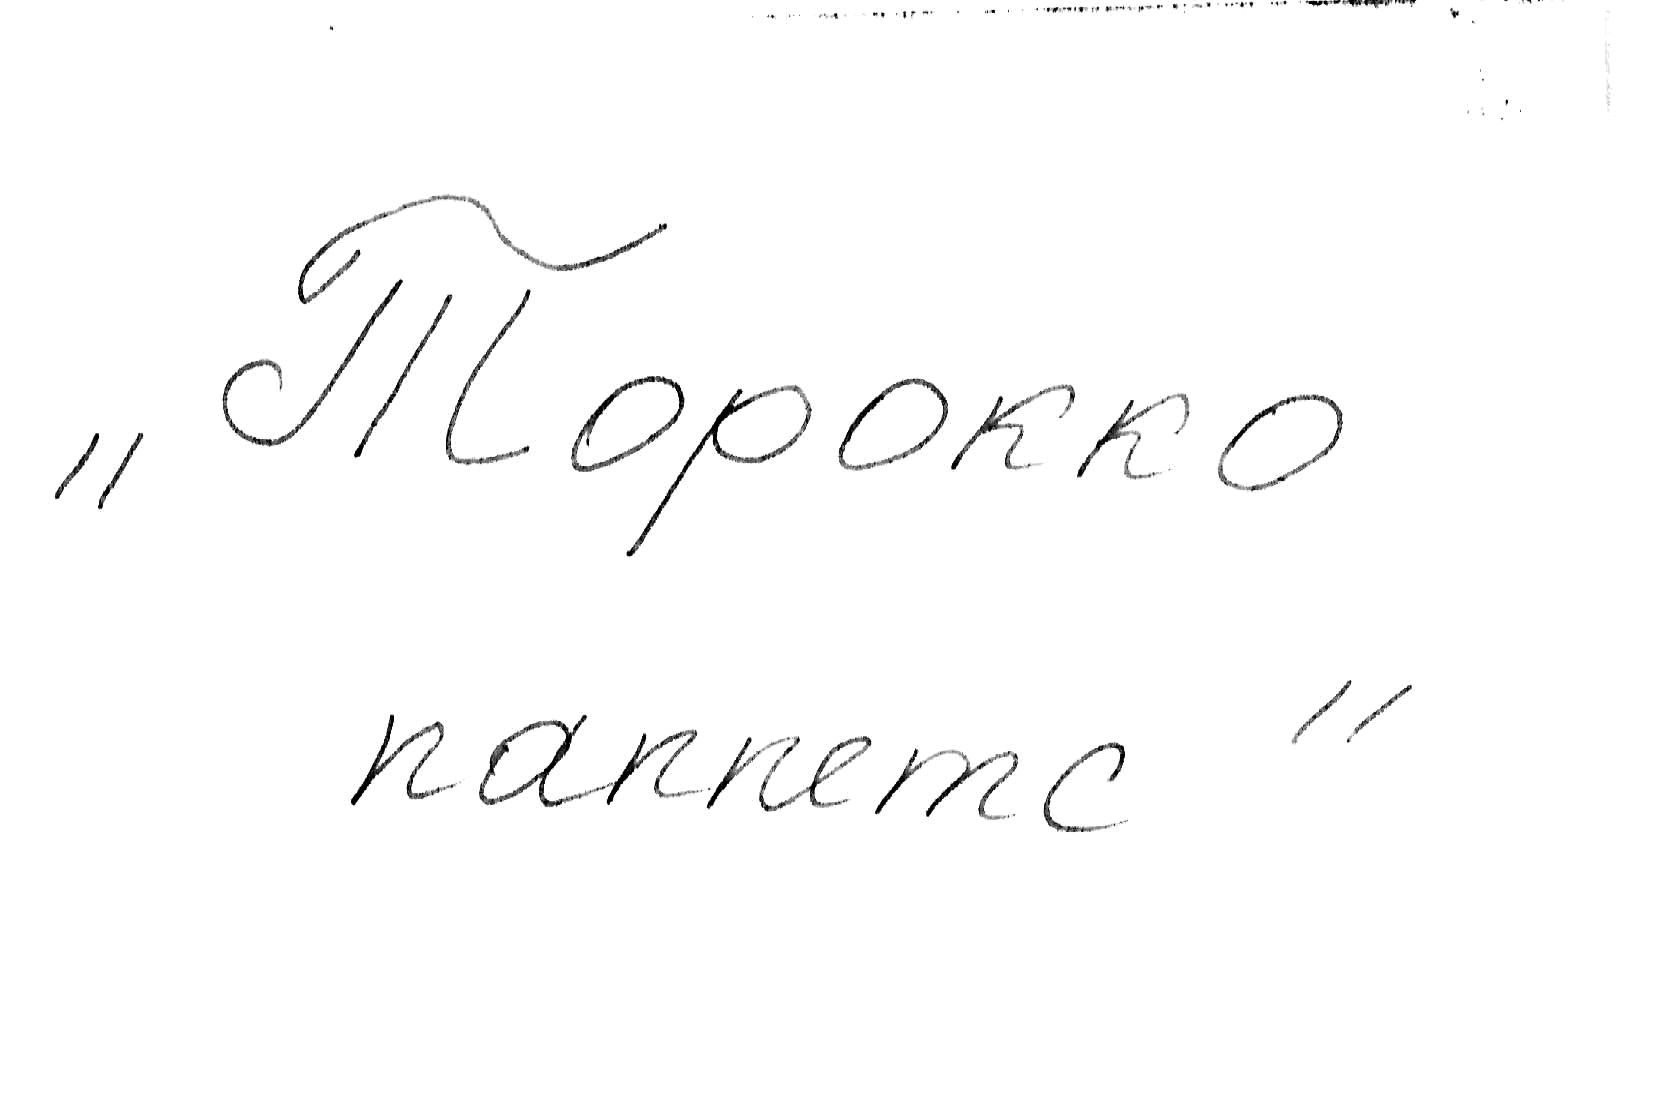 „Торокко
паппетс"